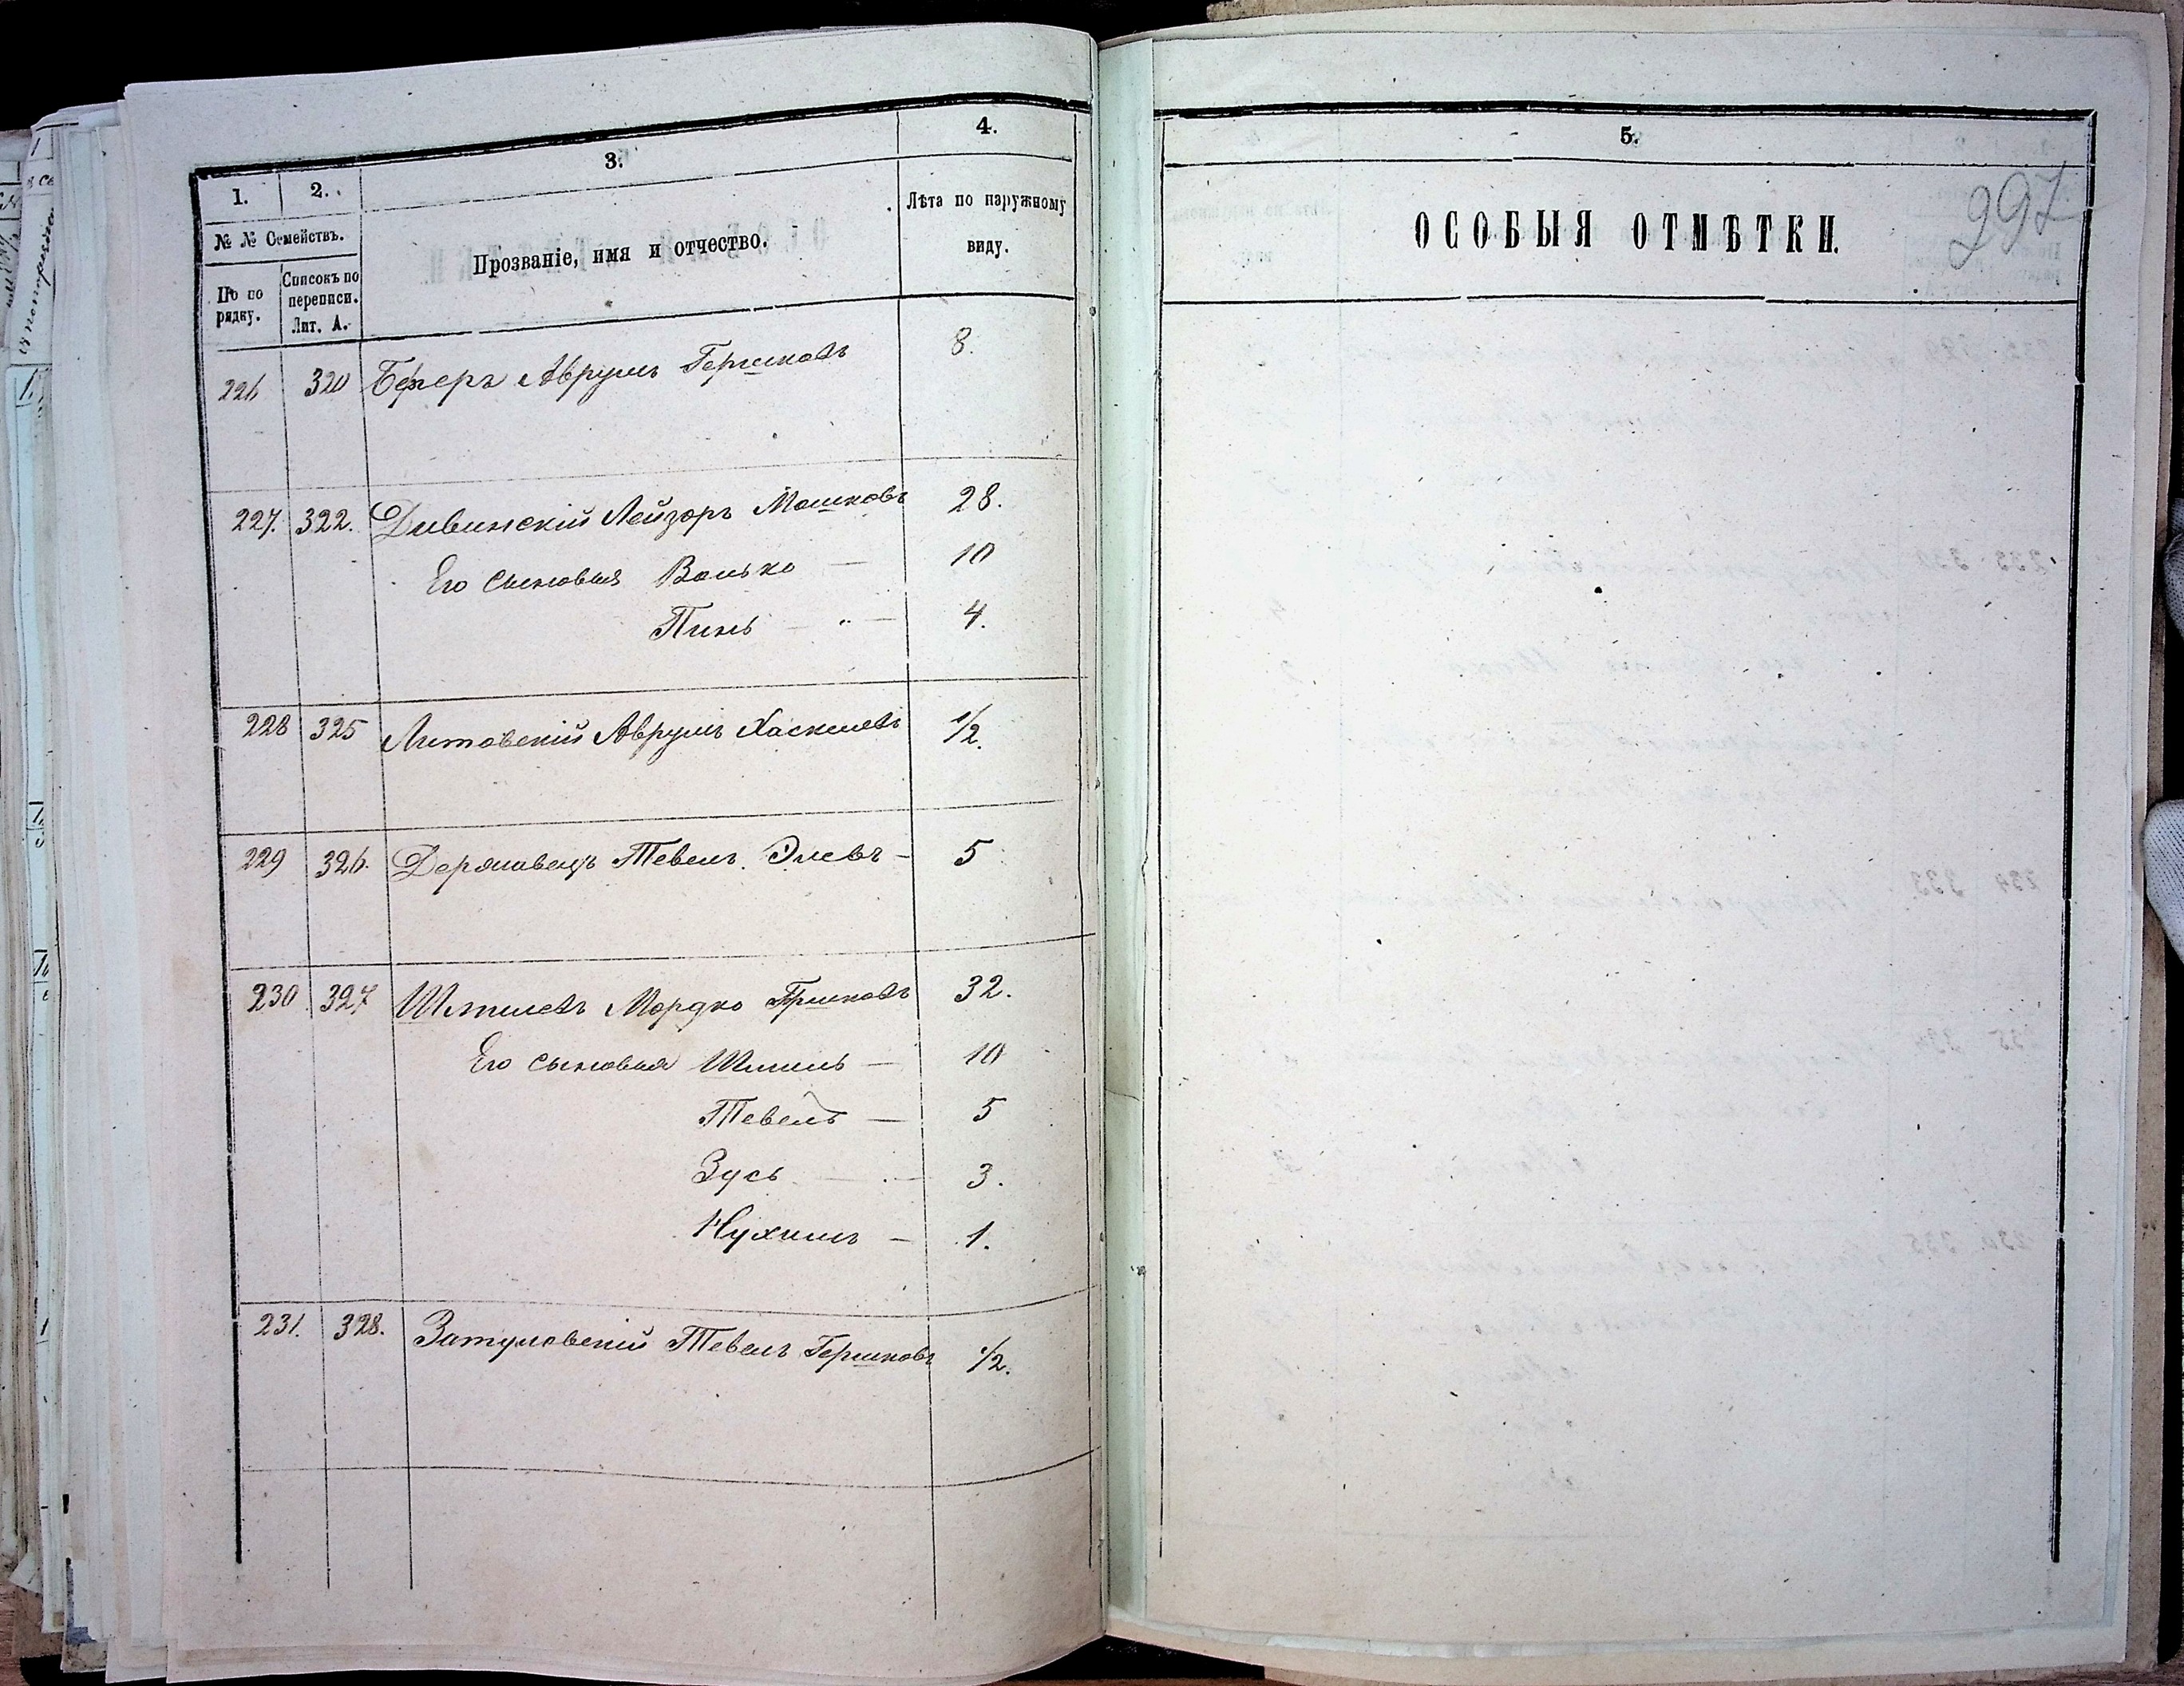 1. 2. 3. 4.
№ № Семействъ. Прозваніе, имя и отчество. Лѣта по наружному виду.
По по рядку. Списокъ по переписи. Лит. А.
226 320 Авруль Гершковъ 8.
227. 322. Дивинскій Лейзоръ Мошковъ 28.
Его сыновья Волько — 10
Пинь — " — 4.
228 325 Литовскій Аврумъ Хаскилевъ 1/2.
229 326. Державецъ Тевель Элевъ — 5
230 327 Мордко Гршковъ 32.
Его сыновья Шмиль — 10
Тевель — 5
Зусь — 3.
Нухимъ — 1.
231. 328. Затуловскій Тевель Гершковъ 1/2.
5.
ОСОБЫЯ ОТМѢТКИ.
297